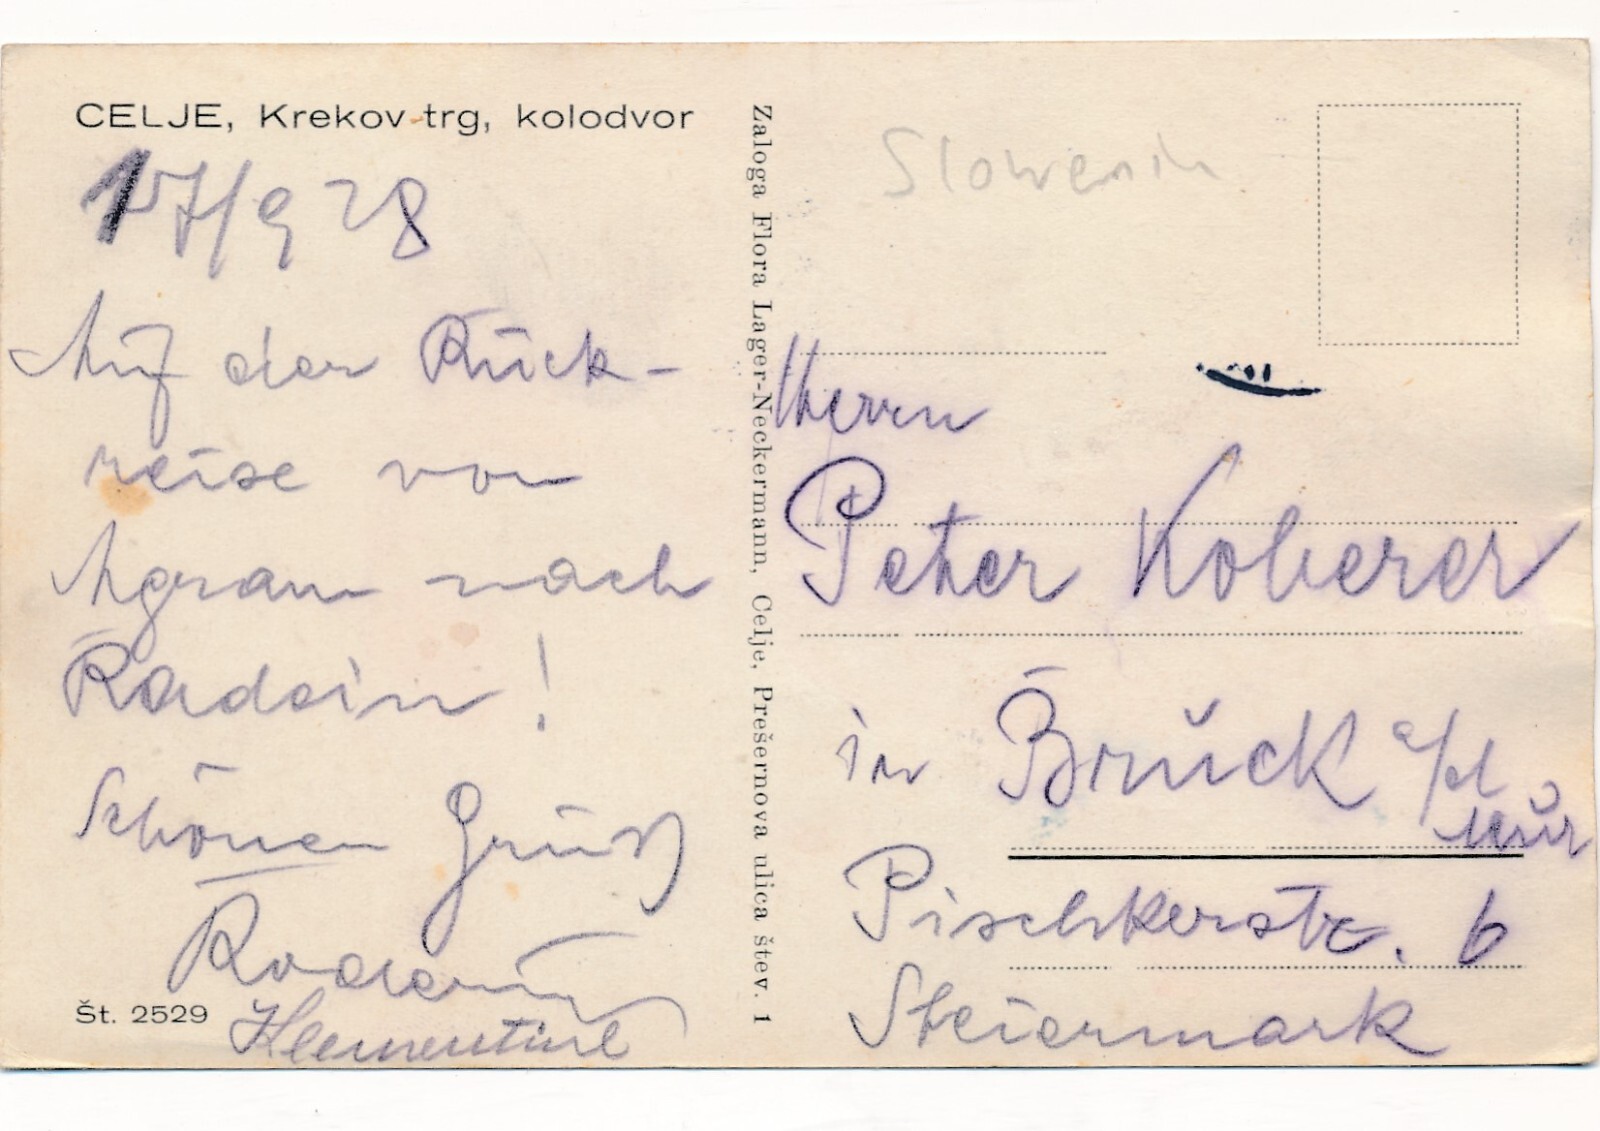 CELJE, Krekov trg, kolodvor
17/9 28
Auf der Rück-
reise von
Agram nach
Radein!
Schönen Gruß
Klementine
Št. 2529
Zaloga Flora Lager-Neckermann, Celje, Prešernova ulica štev. 1
Slowenien
Herrn
Peter Koberer
in Bruck a/d
Mur
Pischkerstr. 6
Steiermark